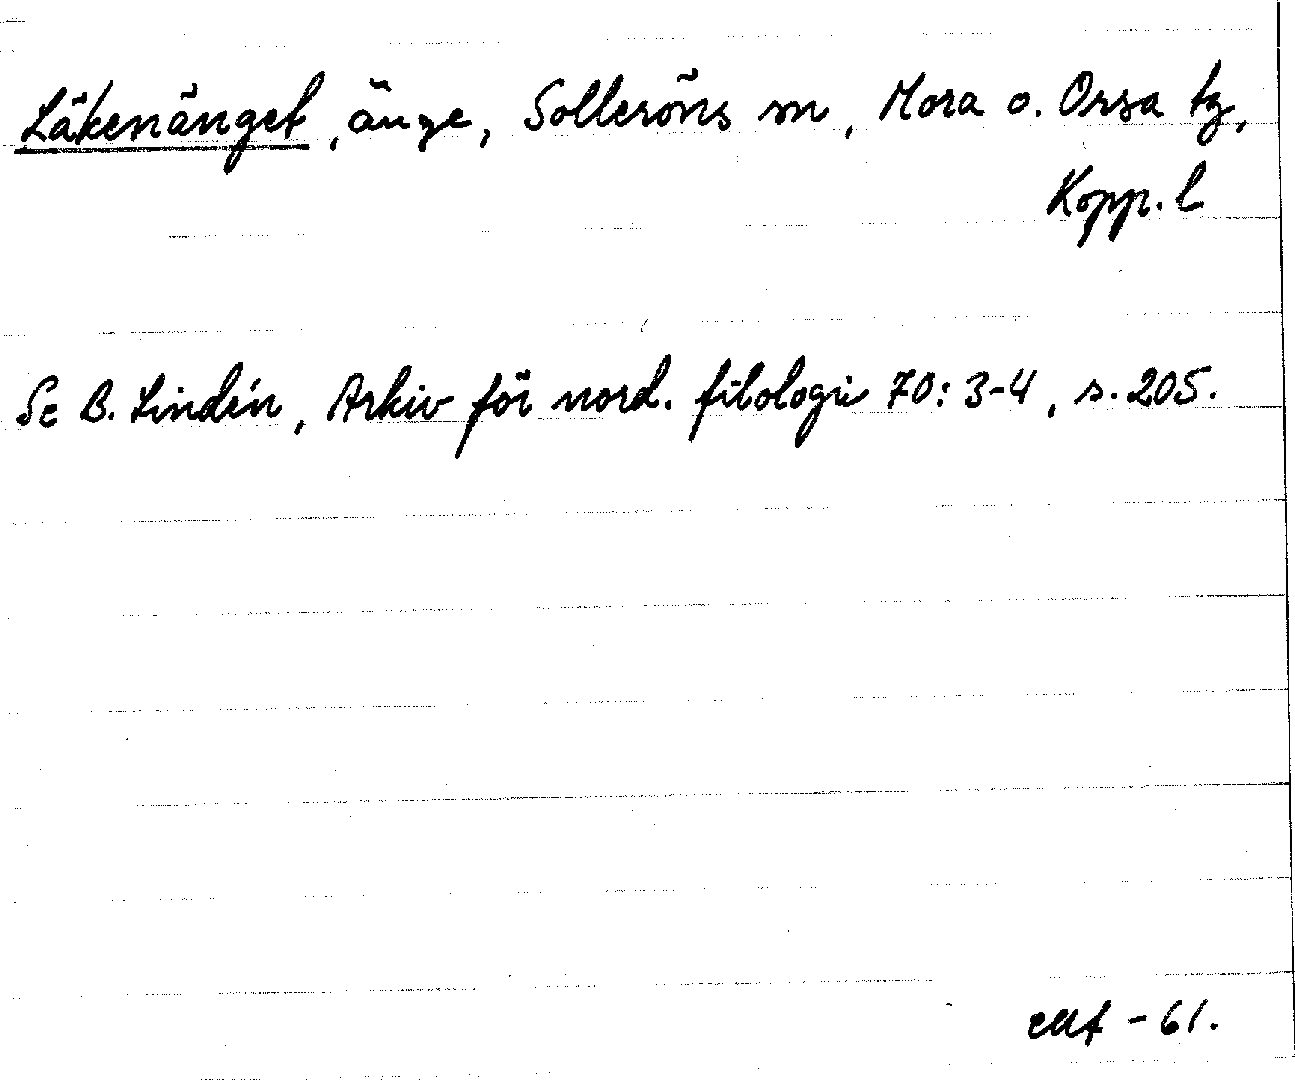 Läkenänget, änge, Solleröns sn, Mora o. Orsa tg,
Kopp. l
Se B. Lindén, Arkiv för nord. filologi 70: 3-4, s. 205.
-61.